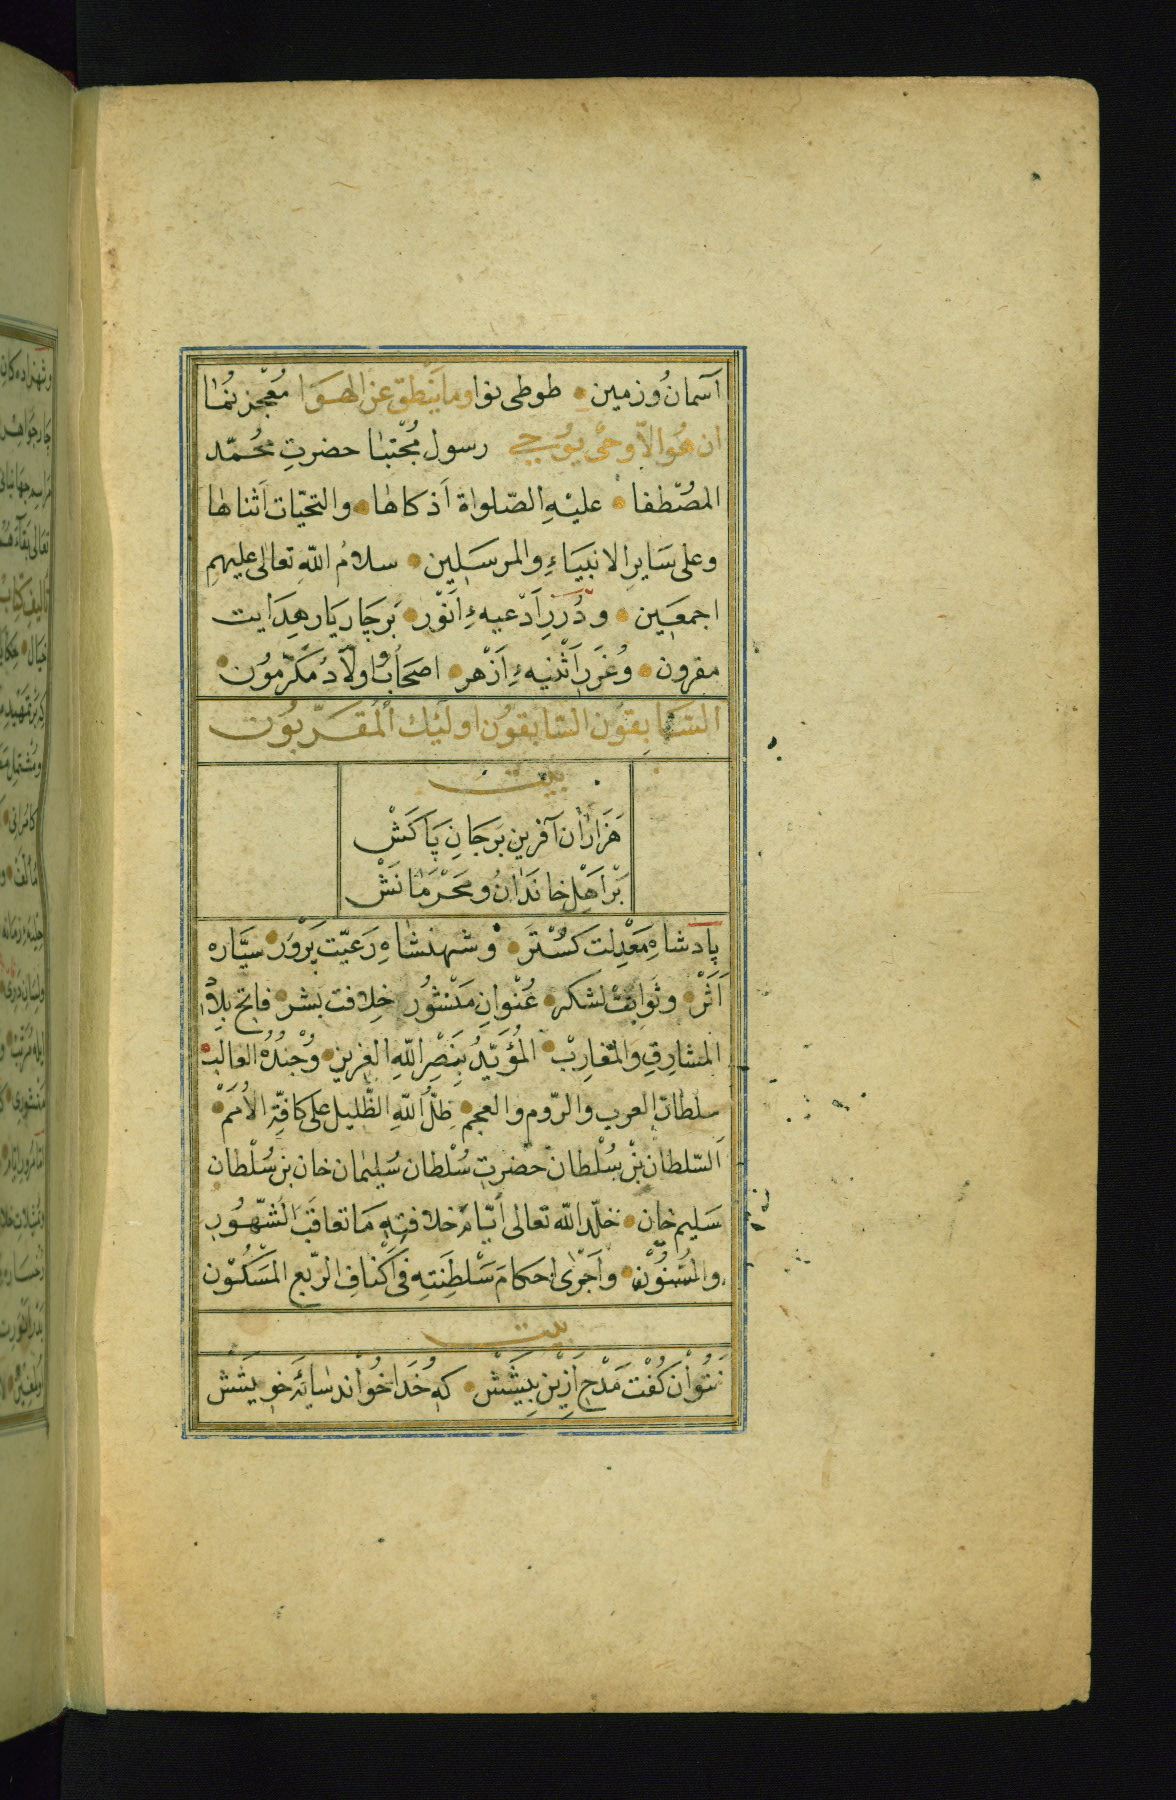 آسمان وزمین طوطی نوا وما ینطق عن الهوا معجز نما
ان هو الاّ وحی یوحی رسول مجتبا حضرتِ محمّد
المصطفا علیهِ الصّلواة اذکاها والتحیّات اثناها
وعلی سایر الانبیاءِ والمرسلین سلامُ اللّهِ تعالی علیهم
اجمعین ودُررِ ادعیهءِ انور بر چار یار هدایت
مقرون وغرر اثنیهءِ ازهر اصحاب واولاد مکرّمون
السّابقون السّابقون اولئِك المقرّبون
بیت
هزاران آفرین بر جانِ پاکش
بر اهلِ خاندان ومحرمانش
پادشاهِ معدلت کستر وشهنشاهِ رعیّت پرور سیّاره
اثر وثوابت لشکر عنوانِ منشور خلافت بشر فاتح بلاد
المشارقِ والمغارب المؤیّد بنصرِ اللّهِ العزیز وجندهُ الغالب
سلطان العرب والرّوم والعجم ظلّ اللّهِ الظّلیل علی کافّة الامم
السّلطان بن سلطان حضرت سلطان سلیمان خان بن سلطان
سلیم خان خلّد اللّه تعالی ایّام خلافتهِ ما تعاقب الشّهور
والسّنون واجری احکام سلطنتهِ فی اکنافِ الرّبع المسکون
بیت
نتوان کفت مدح ازین بیشش که خدا خواند سایهٔ خویشش